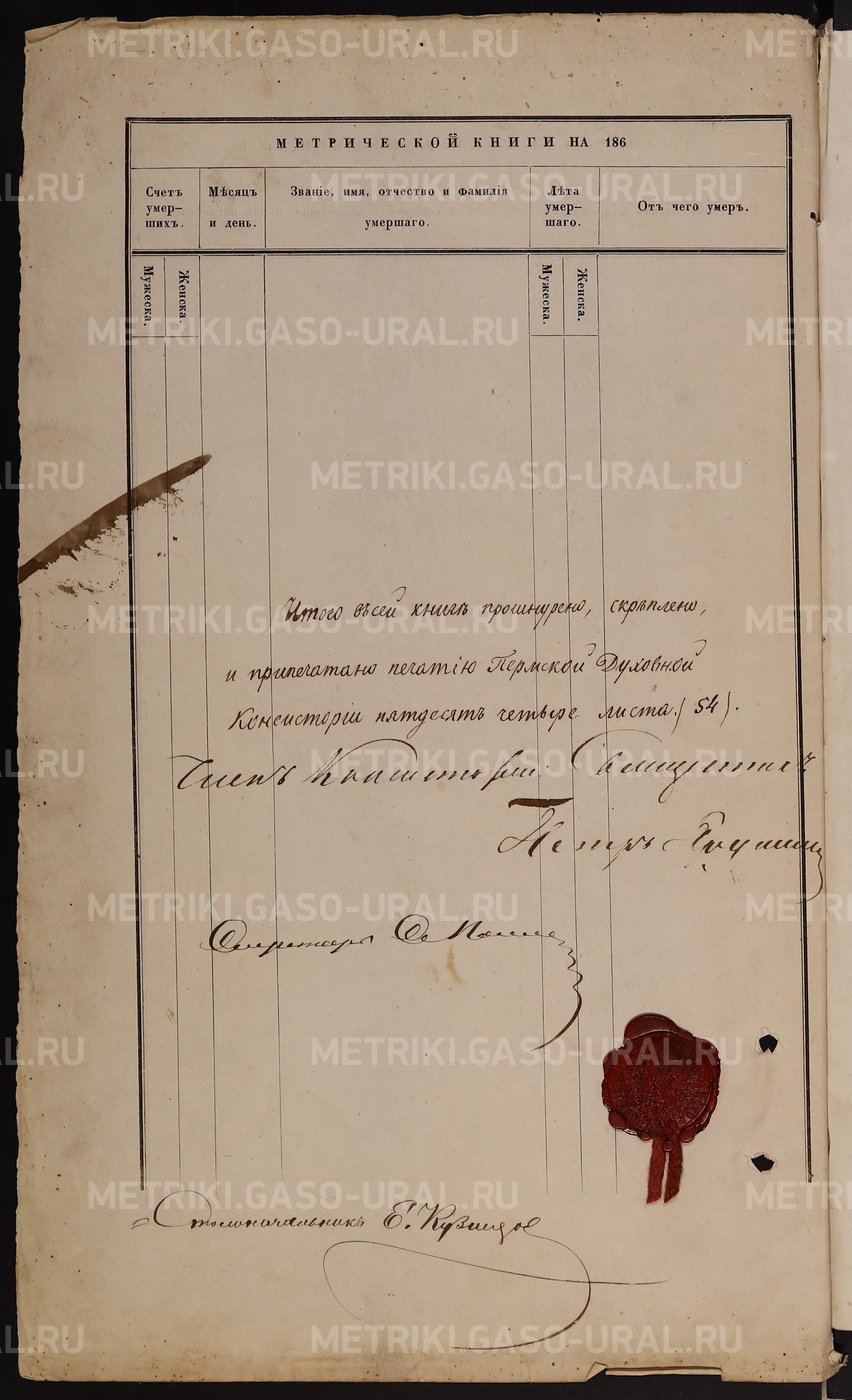 METRIKI.GASO-URAL.RU
МЕТРИЧЕСКОЙ КНИГИ НА 186
Счетъ умер-шихъ.
Мѣсяцъ и день.
Званіе, имя, отчество и фамилія умершаго.
Лѣта умер-шаго.
Отъ чего умеръ.
Мужеска.
Женска.
Мужеска.
Женска.
Итого въ сей книгѣ прошнурено, скрѣплено,
и припечатано печатію Пермской Духовной
Консисторіи пятдесятъ четыре листа. (54).
Членъ Консисторіи Священникъ
Петръ
Секретарь
Столоначальникъ Е. Кузнецов